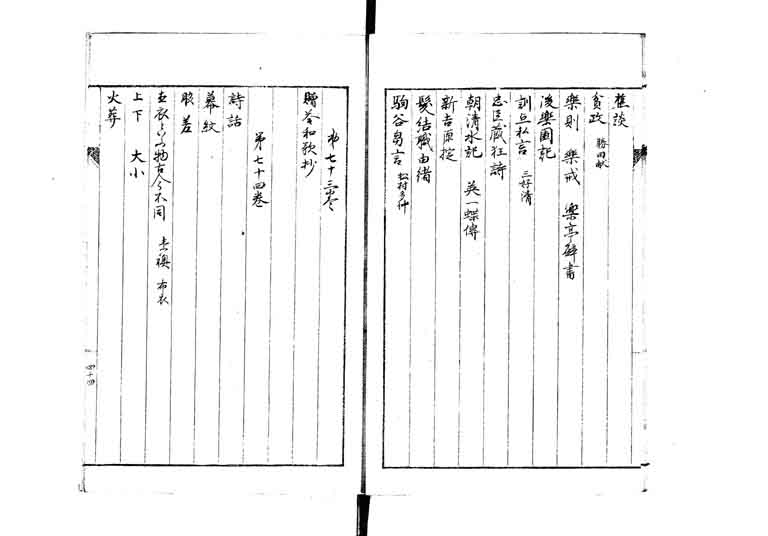 樵談
貧政 勝田献
樂則 樂戒 樂亭壁書
後樂園記
訓亞私言 三好清
忠臣蔵狂詩
朝清水記 英一蝶傳
新吉原掟
髪結職由緒
駒谷芻言 松村
第七十三巻
贈答和歌抄
第七十四巻
詩話
幕紋
脇差
直衣といふ物古今不同 素襖 布衣
上下 大小
火葬
四十四